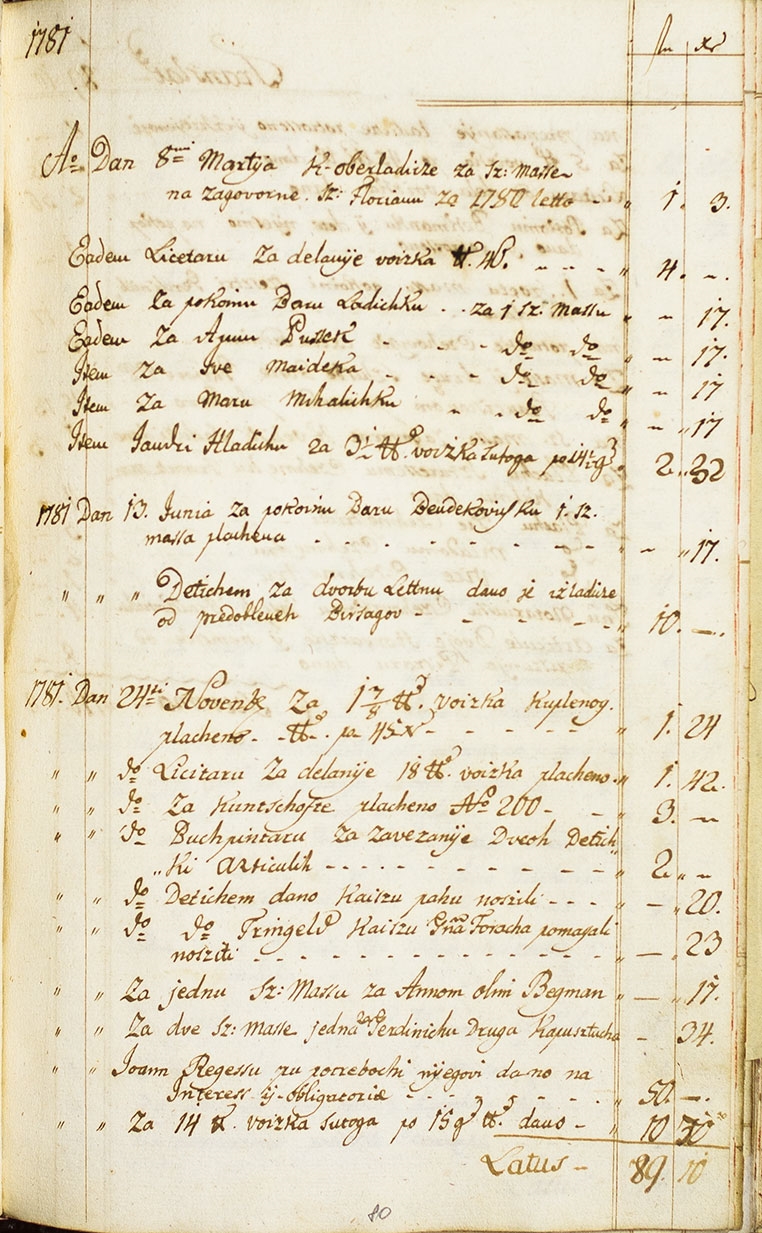 1781
fn xr
Ao Dan 8mi Martija K-oberladicze za sz: Masse
na zagovorne. sz: Floriann za 1780 letto - " 1. 3.
Eadem Licetaru Za delanije voizka tt. 48. - - - " 4. -.
Eadem za pokoinu Daru Ladichku . . za 1 sz: Massu " - 17.
Eadem Za Anum Pussek - - - - do do " - 17.
Item za Ive Maideka - - - - do do " - 17
Item Za Maru Mihalichku - - do do " - " 17
Item Jandri Hladichu za 3½ tt. voizka sutoga po 14½ g " 2. " 32
1781 Dan 13. Junia za pokoinu Daru Deudekovichku 1. sz.
massa plachena - - - - - - - - " - " 17.
" " " Detichem za dvorbu Lettnu dano je iz ladicze
od predobleneh Birsagov - - - - - - " 10. -.
1781. Dan 24ti Novemb Za 1 7/8 tt. voizka Kuplenog
placheno - - tt. pa 45 xr - - - - - " 1. 24
" " do Licitaru Za delanije 18 tt. voizka placheno. " 1. 42.
" " do Za Kuntschofte placheno No 200 - - " 3. -
" " do Buchpintaru za zavezanije Dveoh Detich
" Ki Articulih - - - - - - - - - " 2. " -
" " do Detichem dano Kaiszu pahu noszili - - - " - " 20.
" " do do Tringeld Kaiszu Gna Foracha pomagali
nosziti - - - - - - - - - - - - " - . 23
" " Za jednu Sz: Massu za Annom olmi Begman " - " 17.
" " Za dve Sz: Masse jedna za Ferdinichu Druga Kapusztucha - 34.
" " Joann Regessu pu potrebochi nyegovi da-no na
Interess ij-obligatoriae - - - - 5 - - - " 50. -.
" " Za 14 tt. voizka sutoga po 15 g tt. dano - " 10 30
Latus - 89. 10
80